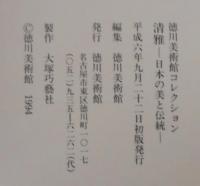 徳川美術館コレクション
清雅―日本の美と伝統―
平成六年九月二十二日初版発行
編集　徳川美術館
発行　徳川美術館
名古屋市東区徳川町一〇一七
(〇五二)九三五―六二六二(代)
製作　大塚巧藝社
©徳川美術館　1994